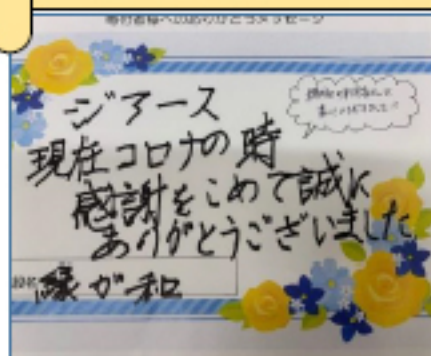 寄付者様へのありがとうメッセージ
ジアース
現在コロナの時
感謝をこめて誠に
ありがとうございました
縁が和